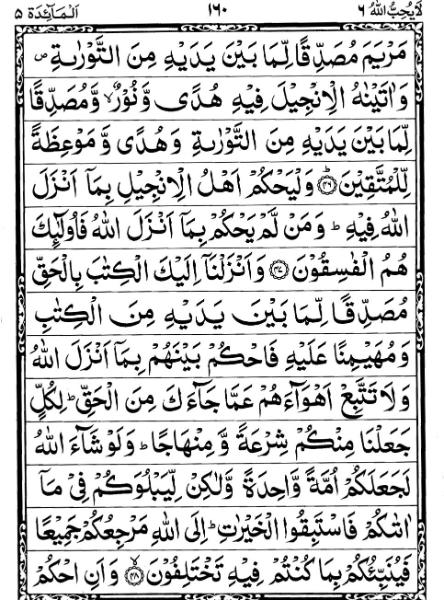 لَايُحِبُّ اللّٰهُ ٦ ١٦٠ اَلْمَآئِدَة ٥
مَرْيَمَ مُصَدِّقًا لِّمَا بَيْنَ يَدَيْهِ مِنَ التَّوْرٰىةِ ص
وَاٰتَيْنٰهُ الْاِنْجِيْلَ فِيْهِ هُدًى وَّنُوْرٌ ۙ وَّمُصَدِّقًا
لِّمَا بَيْنَ يَدَيْهِ مِنَ التَّوْرٰىةِ وَهُدًى وَّمَوْعِظَةً
لِّلْمُتَّقِيْنَ ؕ وَلْيَحْكُمْ اَهْلُ الْاِنْجِيْلِ بِمَآ اَنْزَلَ
اللّٰهُ فِيْهِ ؕ وَمَنْ لَّمْ يَحْكُمْ بِمَآ اَنْزَلَ اللّٰهُ فَاُولٰٓئِكَ
هُمُ الْفٰسِقُوْنَ وَاَنْزَلْنَآ اِلَيْكَ الْكِتٰبَ بِالْحَقِّ
مُصَدِّقًا لِّمَا بَيْنَ يَدَيْهِ مِنَ الْكِتٰبِ
وَمُهَيْمِنًا عَلَيْهِ فَاحْكُمْ بَيْنَهُمْ بِمَآ اَنْزَلَ اللّٰهُ
وَلَا تَتَّبِعْ اَهْوَآءَهُمْ عَمَّا جَآءَكَ مِنَ الْحَقِّ ؕ لِكُلٍّ
جَعَلْنَا مِنْكُمْ شِرْعَةً وَّمِنْهَاجًا ؕ وَلَوْ شَآءَ اللّٰهُ
لَجَعَلَكُمْ اُمَّةً وَّاحِدَةً وَّلٰكِنْ لِّيَبْلُوَكُمْ فِيْ مَآ
اٰتٰىكُمْ فَاسْتَبِقُوا الْخَيْرٰتِ ؕ اِلَى اللّٰهِ مَرْجِعُكُمْ جَمِيْعًا
فَيُنَبِّئُكُمْ بِمَا كُنْتُمْ فِيْهِ تَخْتَلِفُوْنَ ۙ وَاَنِ احْكُمْ